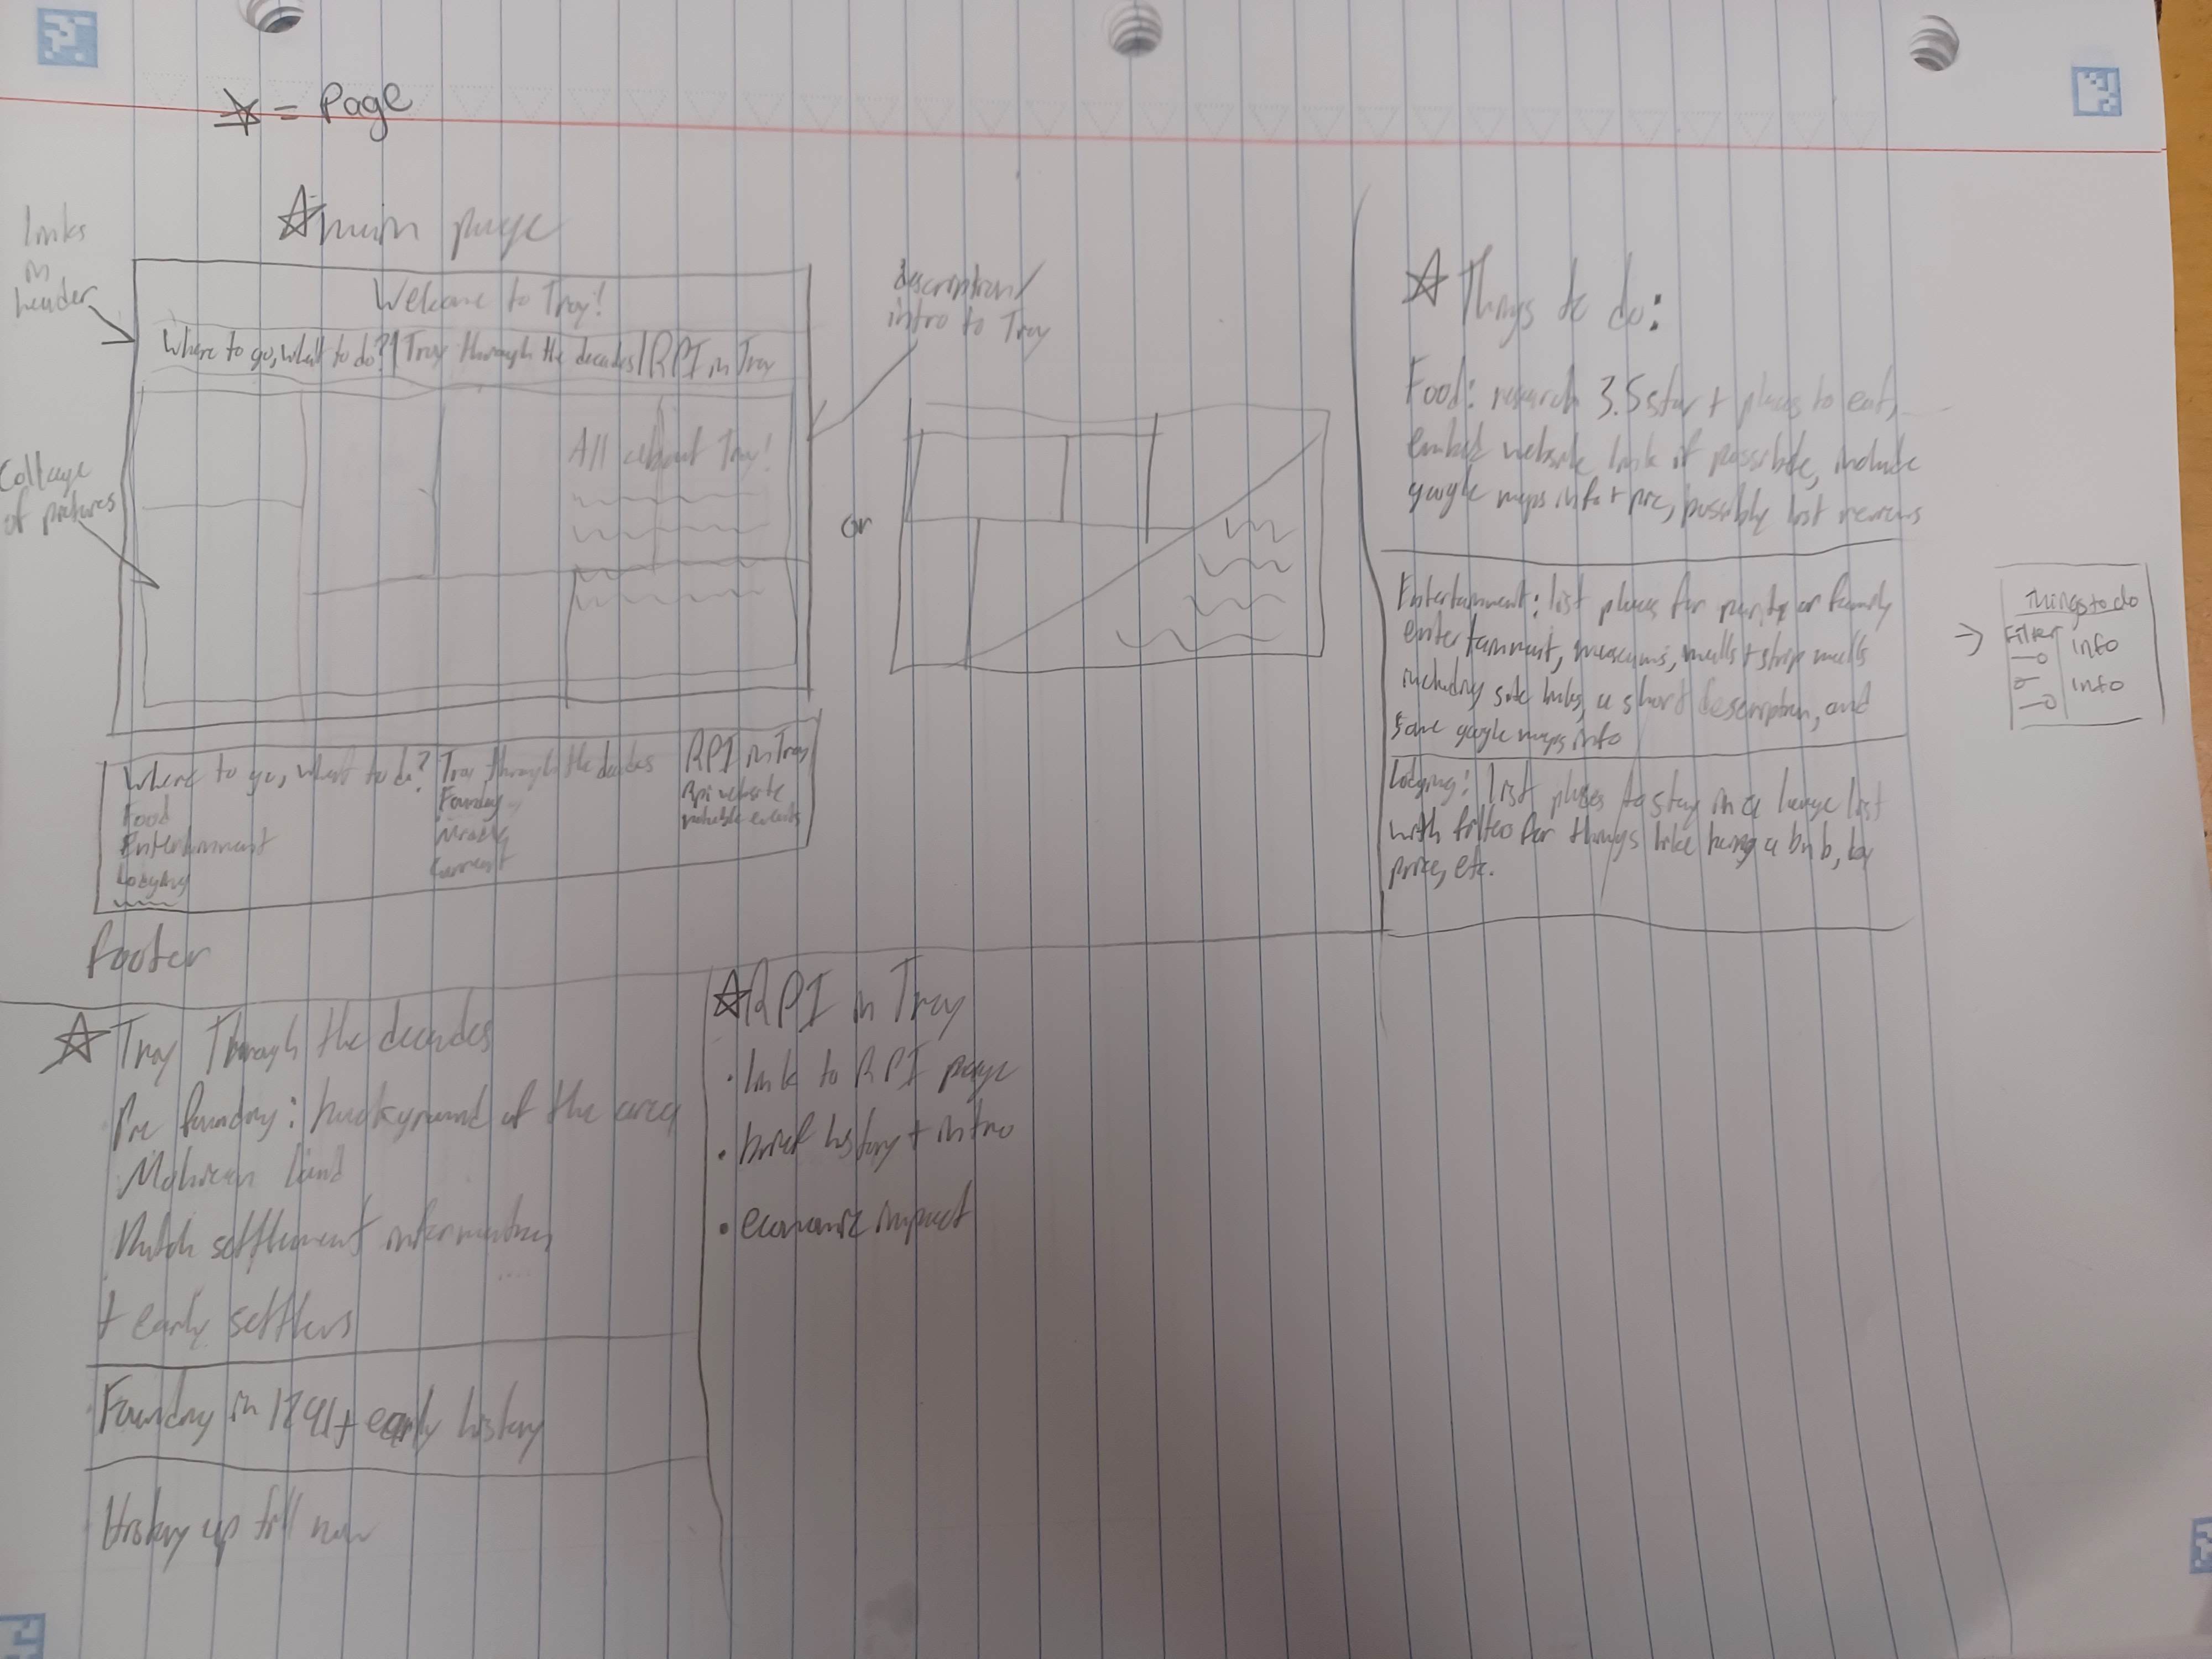 ☆ = Page
☆ main page
links
in
header
Welcome to Troy!
Where to go, what to do? | Troy through the decades | RPI in Troy
Collage
of pictures
All about Troy!
description/
intro to Troy
or
Where to go, what to do?
Food
Entertainment
Lodging
Troy through the decades
Founding
Current
RPI in Troy
Rpi website
notable events
footer
☆ Things to do:
Food: research 3.5 star + places to eat,
embed website link if possible, include
google maps info + pic, possibly list reviews
Entertainment: list places for party or family
entertainment, museums, malls + strip malls
including site links, a short description, and
some google maps info
Lodging: list places to stay in a large list
with filters for things like being a bnb, by
price, etc.
Things to do
Filter
info
info
☆ Troy Through the decades
Pre founding: background of the area
Mohican land
Dutch settlement information
+ early settlers
Founding in + early history
History up till now
☆ RPI in Troy
• link to RPI page
• brief history + intro
• economic impact